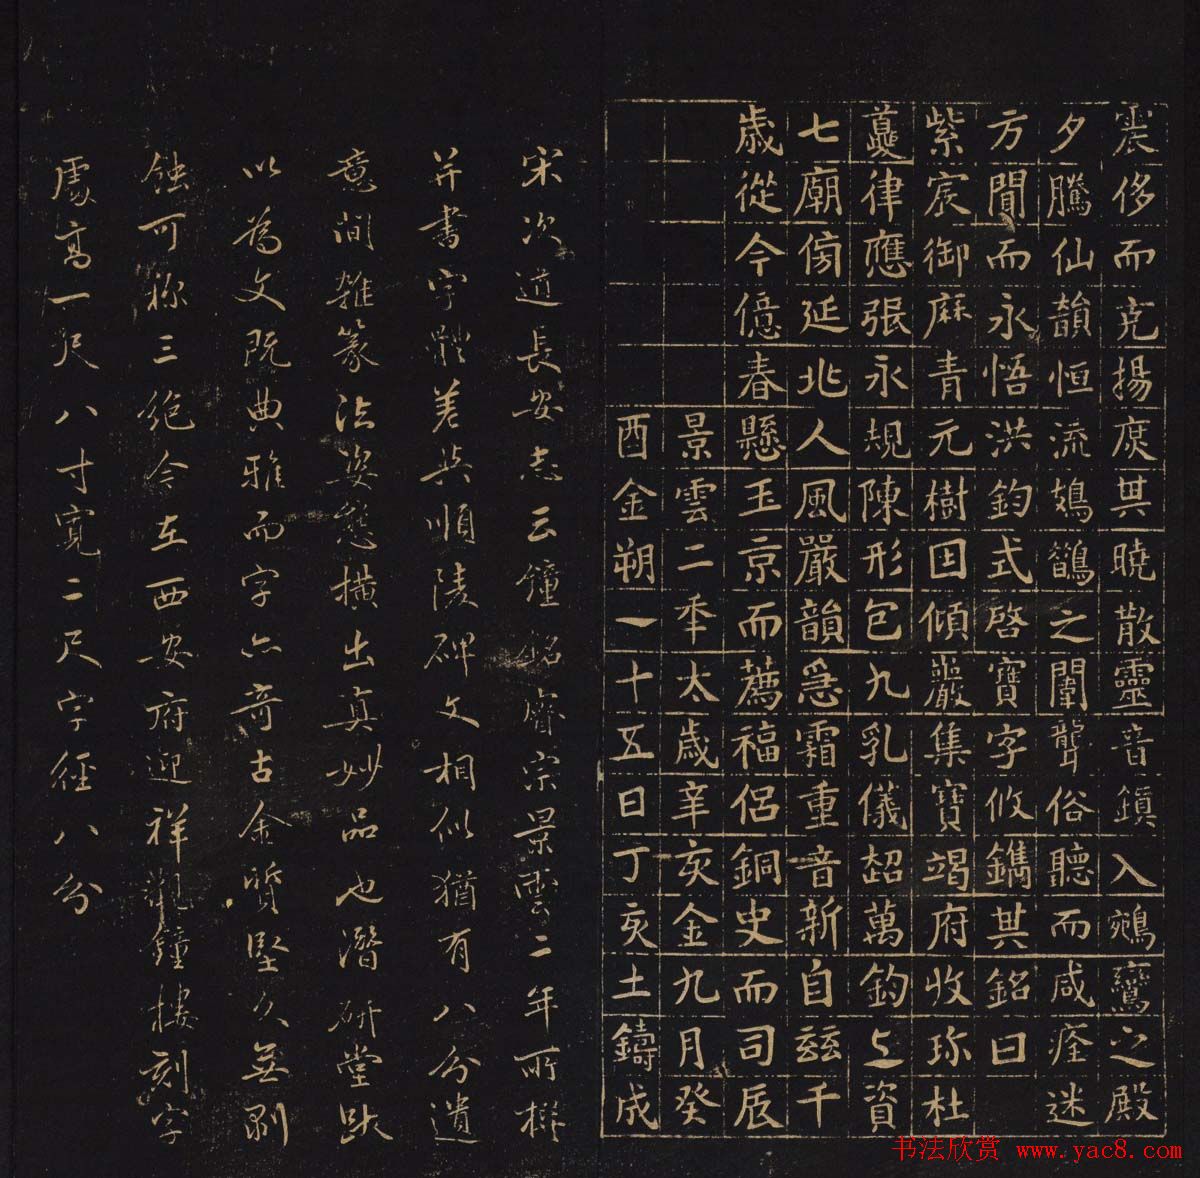 震侈而克揚庶其曉散靈音鎮入鵷鸞之殿
夕騰仙韻恒流鳷鵲之闈聾俗聽而咸痊迷
方聞而永悟洪鈞式啓寶字攸鐫其銘曰
紫宸御曆青元樹因傾巖集寶竭府收珎杜
夔律應張永規陳形包九乳儀超萬鈞上資
七廟傍延兆人風嚴韻急霜重音新自茲千
歲從今億春懸玉京而薦福侶銅史而司辰
景雲二年太歲辛亥金九月癸
酉金朔一十五日丁亥土鑄成
宋次道長安志云鐘銘睿宗景雲二年所撰
并書字體差與順陵碑文相似猶有八分遺
意間雜篆法姿態橫出真妙品也潛研堂跋
以為文既典雅而字亦奇古金質堅久無剝
蝕可称三絕今在西安府迎祥觀鐘樓刻字
處高一尺八寸寬二尺字徑八分
书法欣赏 www.yac8.com